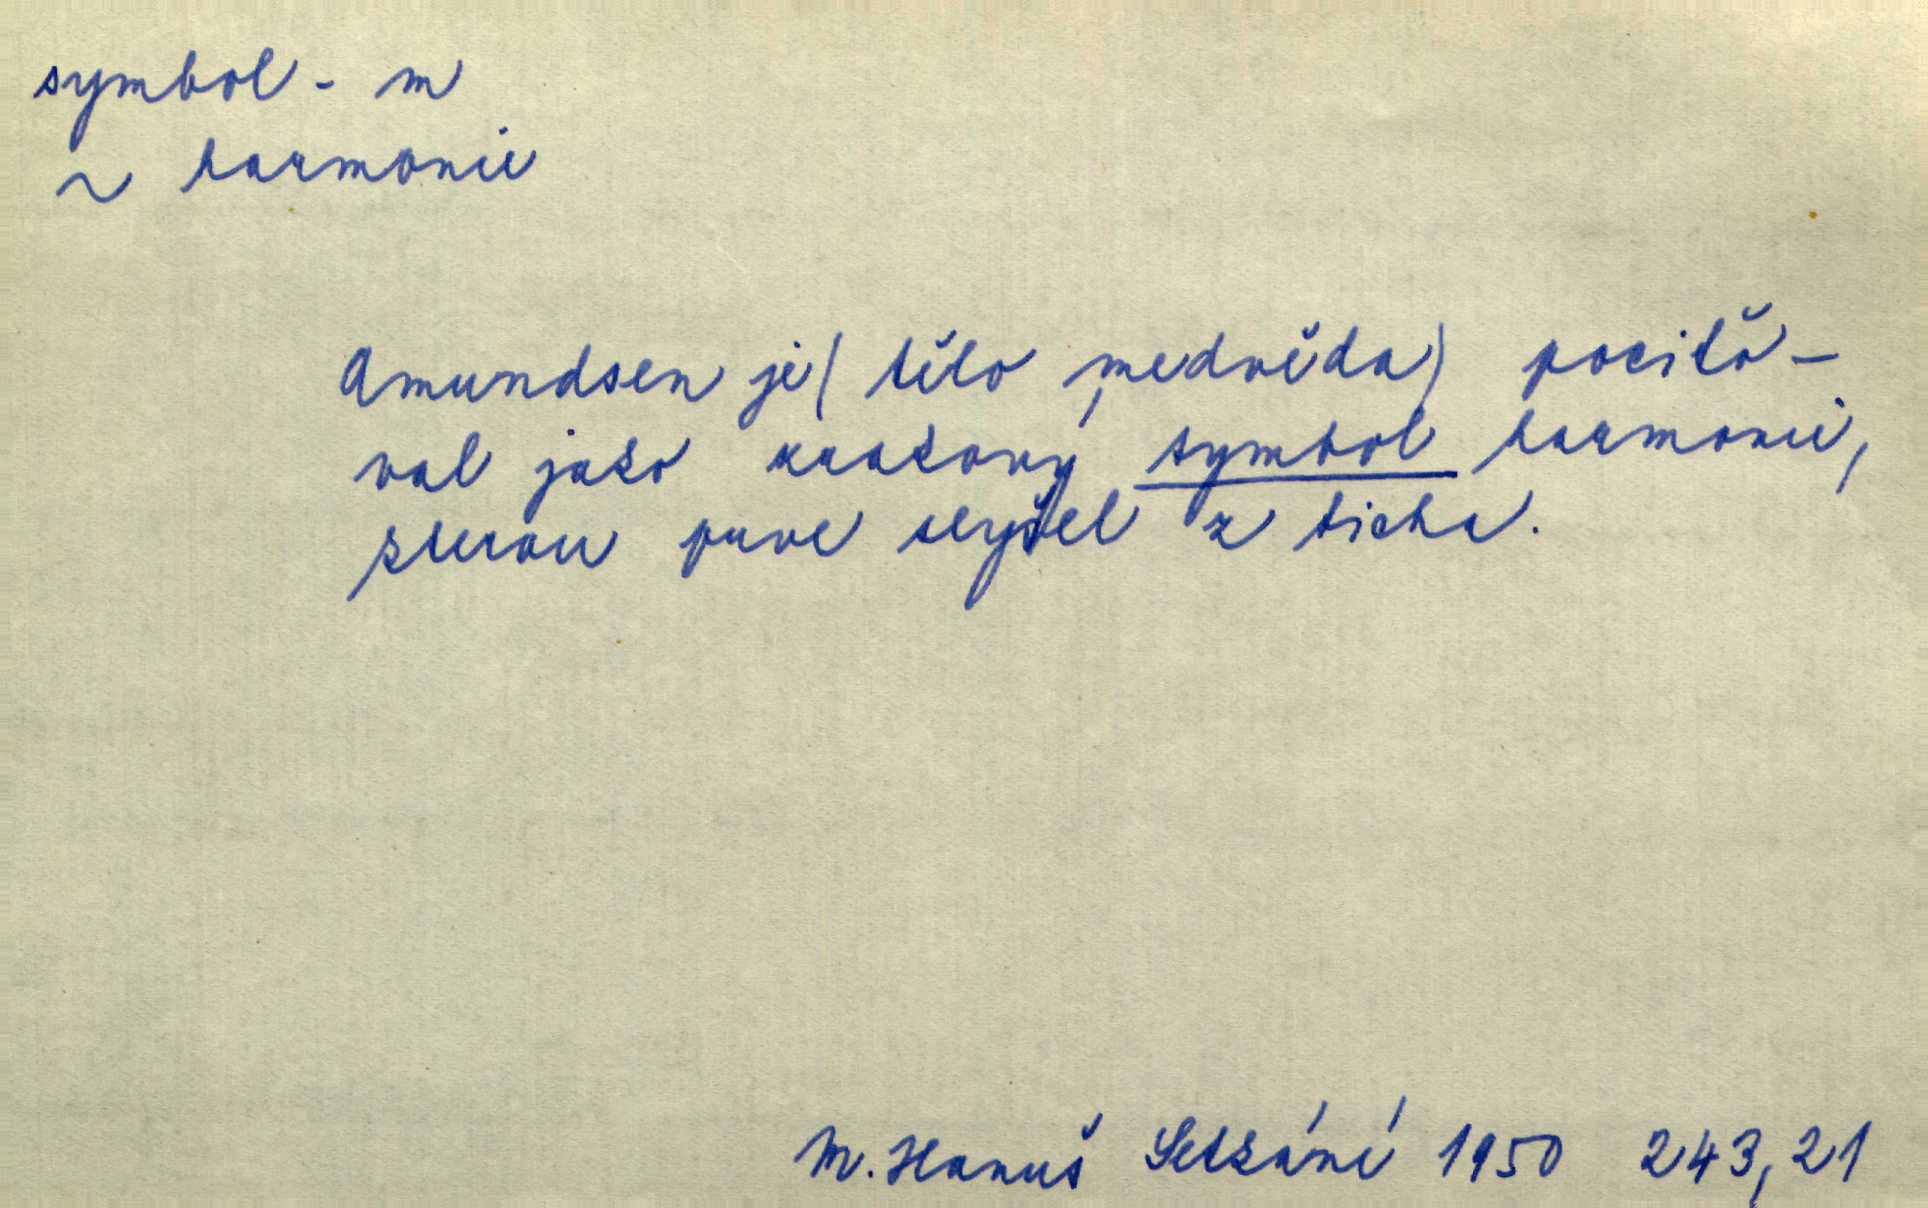 symbol - m
~ harmonie
Amundsen je (tělo medvěda) pociťo-
val jako zrakový symbol harmonie,
kterou prve slyšel z ticha.
M. Hanuš Setkání 1950 243,21